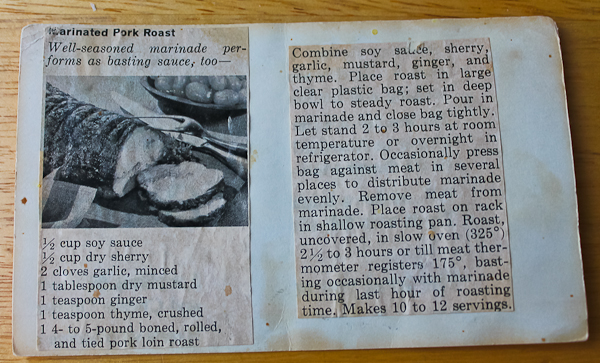 Marinated Pork Roast
Well-seasoned marinade per-
forms as basting sauce, too—
½ cup soy sauce
½ cup dry sherry
2 cloves garlic, minced
1 tablespoon dry mustard
1 teaspoon ginger
1 teaspoon thyme, crushed
1 4- to 5-pound boned, rolled,
and tied pork loin roast
Combine soy sauce, sherry,
garlic, mustard, ginger, and
thyme. Place roast in large
clear plastic bag; set in deep
bowl to steady roast. Pour in
marinade and close bag tightly.
Let stand 2 to 3 hours at room
temperature or overnight in
refrigerator. Occasionally press
bag against meat in several
places to distribute marinade
evenly. Remove meat from
marinade. Place roast on rack
in shallow roasting pan. Roast,
uncovered, in slow oven (325°)
2½ to 3 hours or till meat ther-
mometer registers 175°, bast-
ing occasionally with marinade
during last hour of roasting
time. Makes 10 to 12 servings.